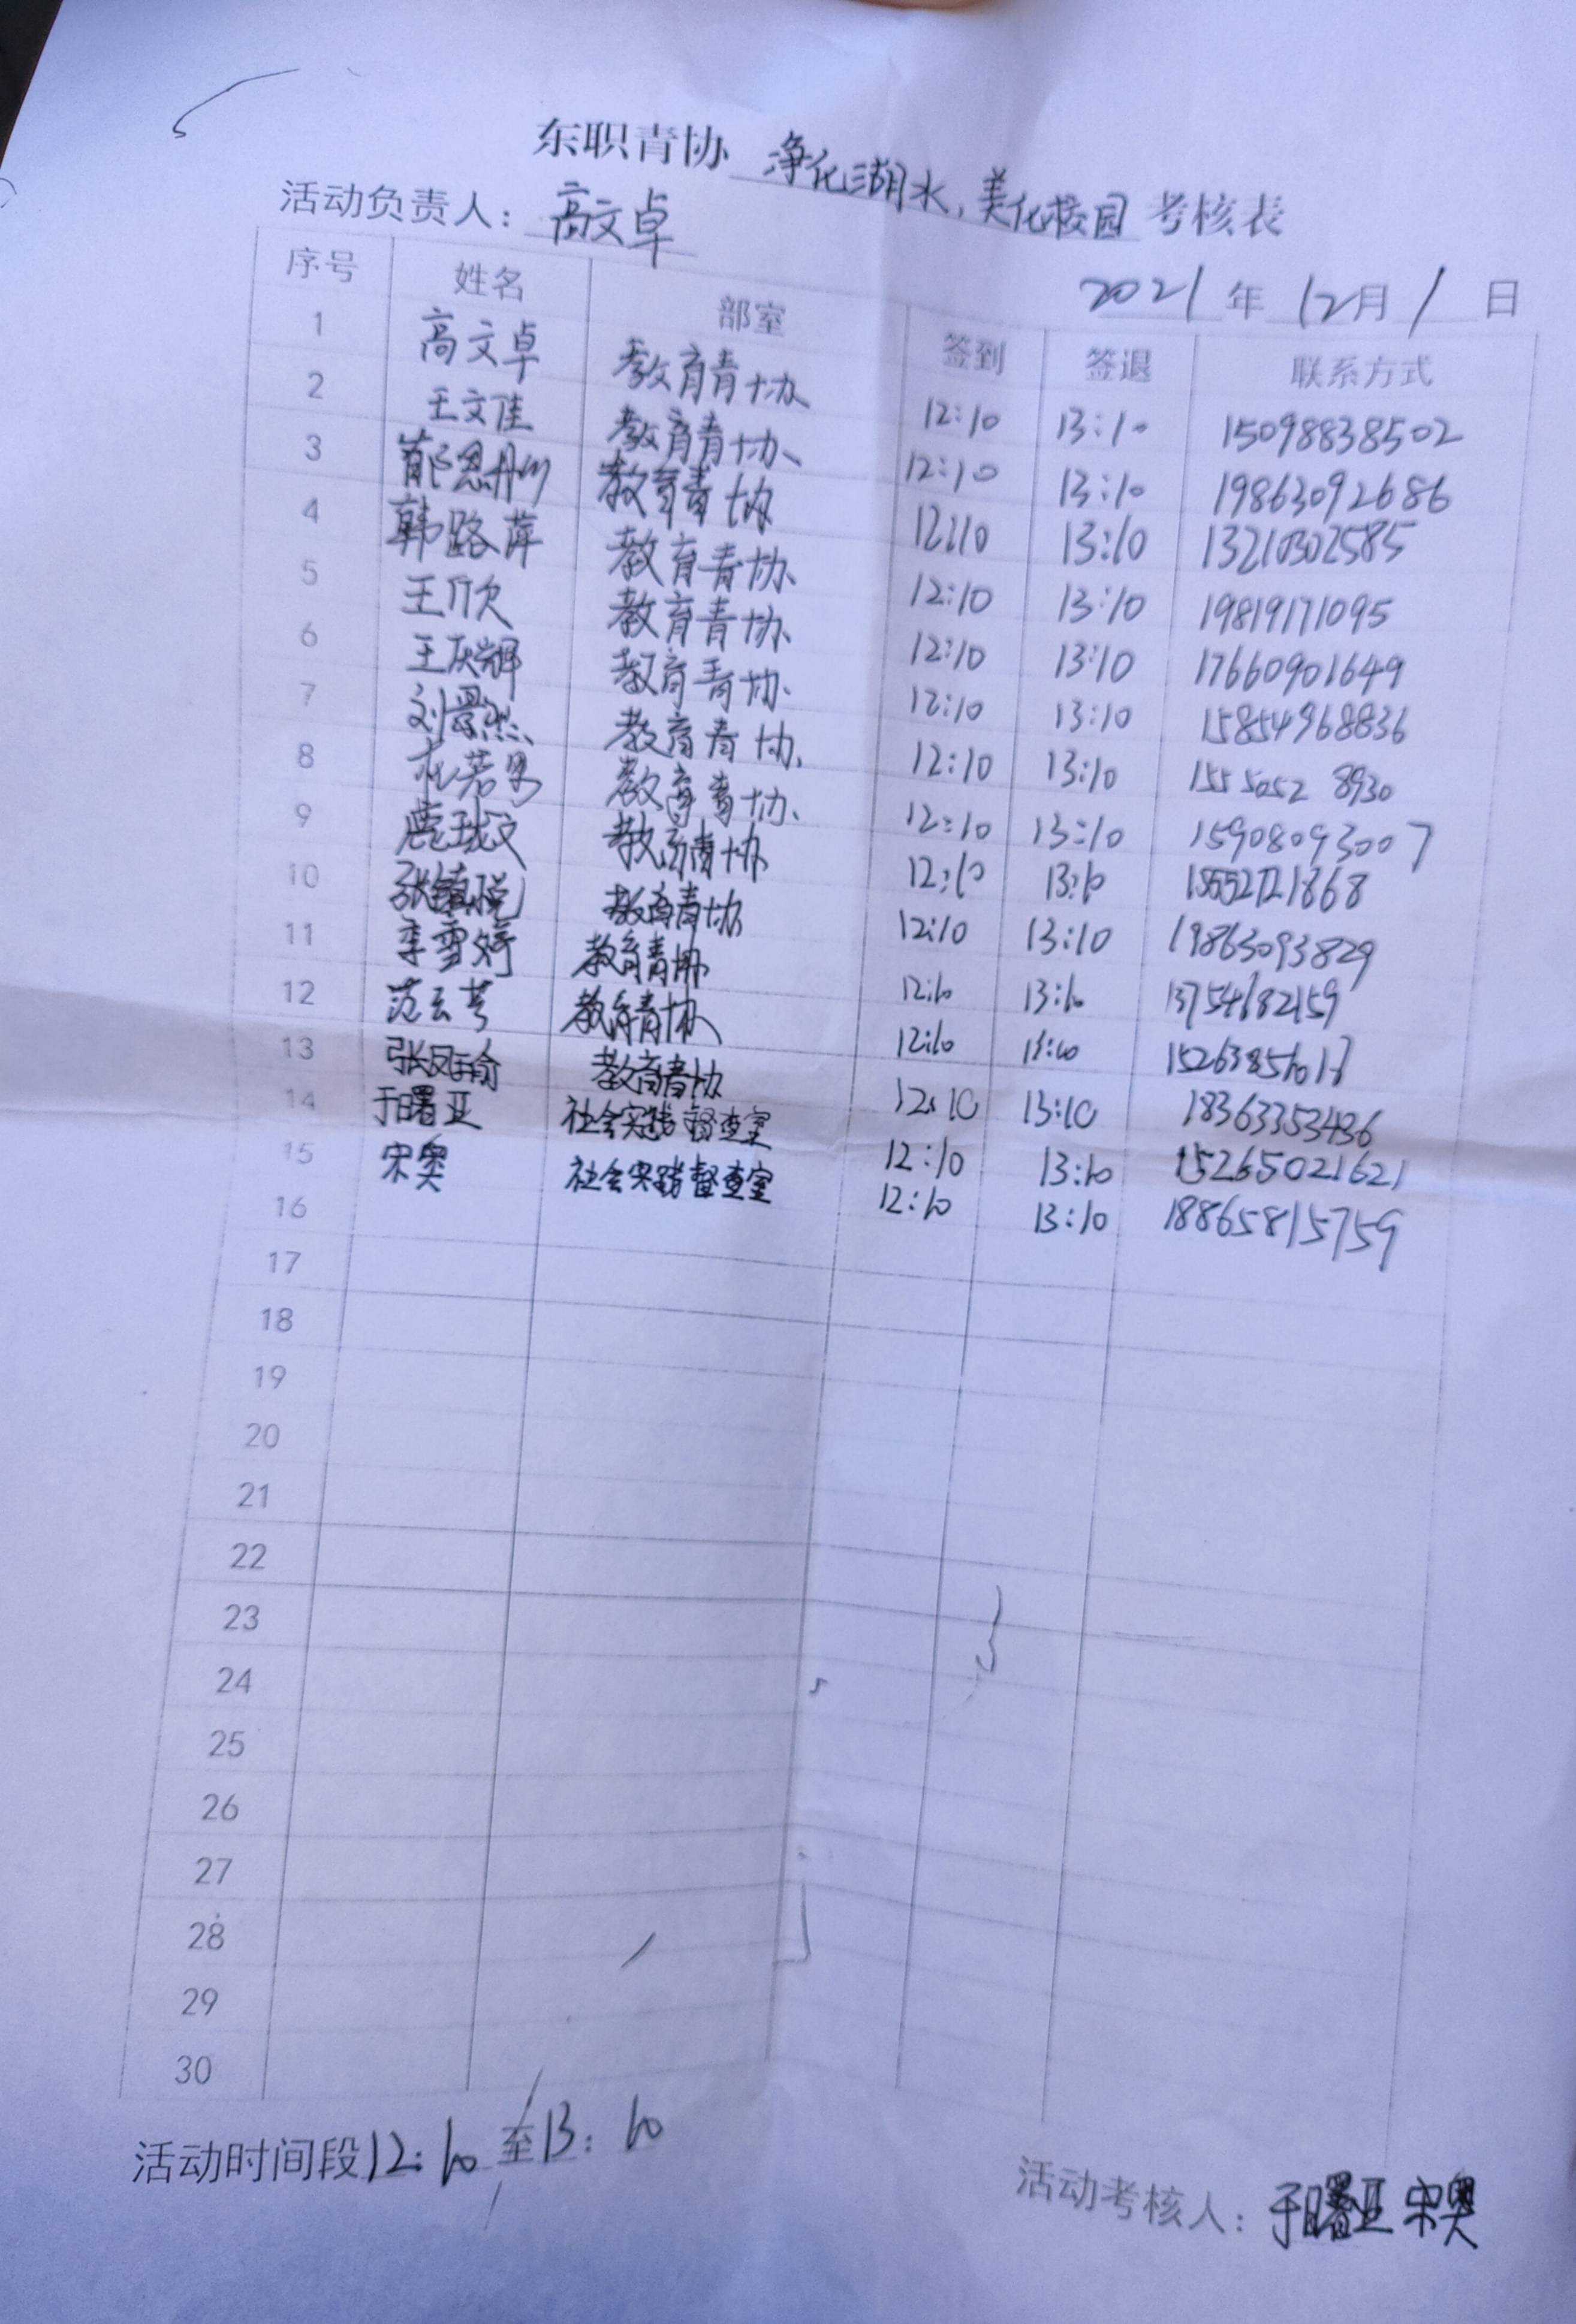 东职青协 净化湖水,美化校园 考核表
活动负责人: 高文卓
2021 年 12月 1 日
序号 姓名 部室 签到 签退 联系方式
1 高文卓 教育青协 12:10 13:10 15098838502
2 王文佳 教育青协 12:10 13:10 19863092686
3 教育青协 12:10 13:10 13210302585
4 韩路萍 教育青协 12:10 13:10 19819171095
5 王欣 教育青协 12:10 13:10 17660901649
6 王庆辉 教育青协 12:10 13:10 15854968836
7 刘景杰 教育青协 12:10 13:10 155 5052 8930
8 杜若男 教育青协 12:10 13:10 15908093007
9 教育青协 12:10 13:10
10 张镇悦 教育青协 12:10 13:10 19863093829
11 李雪婷 教育青协 12:10 13:10 13754682159
12 范云芩 教育青协 12:10
13 张凤瑜 教育青协 12:10 13:10 18363353436
14 于曙亚 社会实践督查室 12:10 13:10 15265021621
15 宋奥 社会实践督查室 12:10 13:10 18865815759
16
17
18
19
20
21
22
23
24
25
26
27
28
29
30
活动时间段12:10 至13:10
活动考核人: 于曙亚 宋奥